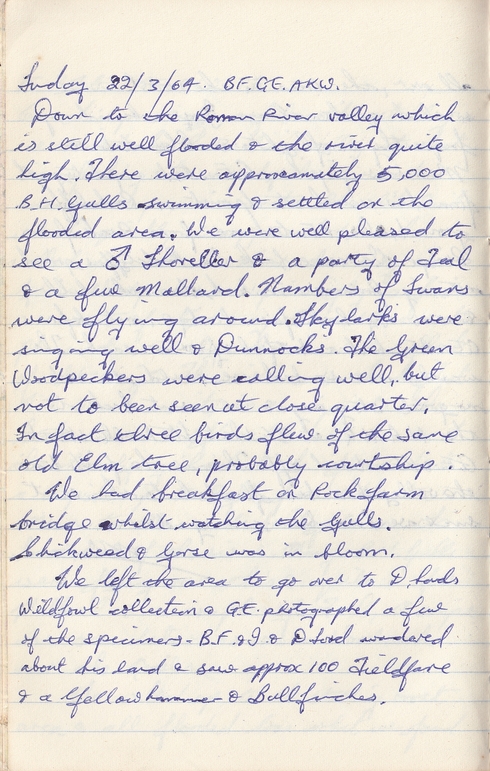 Sunday 22/3/64. B.F. G.E. A.K.W.
Down to the Roman River valley which
is still well flooded & the river quite
high. There were approxamately 5,000
B.H. Gulls swimming & settled on the
flooded area. We were well pleased to
see a ♂ Shoveller & a party of Teal
& a few Mallard. Numbers of Swans
were flying around. Skylarks were
singing well & Dunnocks. The Green
Woodpeckers were calling well, but
not to been seen at close quarter,
In fact three birds flew of the same
old Elm tree, probably courtship.
We had breakfast on Rockfarm
bridge whilst watching the Gulls.
Chickweed & Gorse was in bloom.
We left the area to go over to D.
Wildfowl collection & G.E. photographed a few
of the specimens - B.F. & I & D. wandered
about his land & saw approx 100 Fieldfare
& a Yellowhammer & Bullfinches.